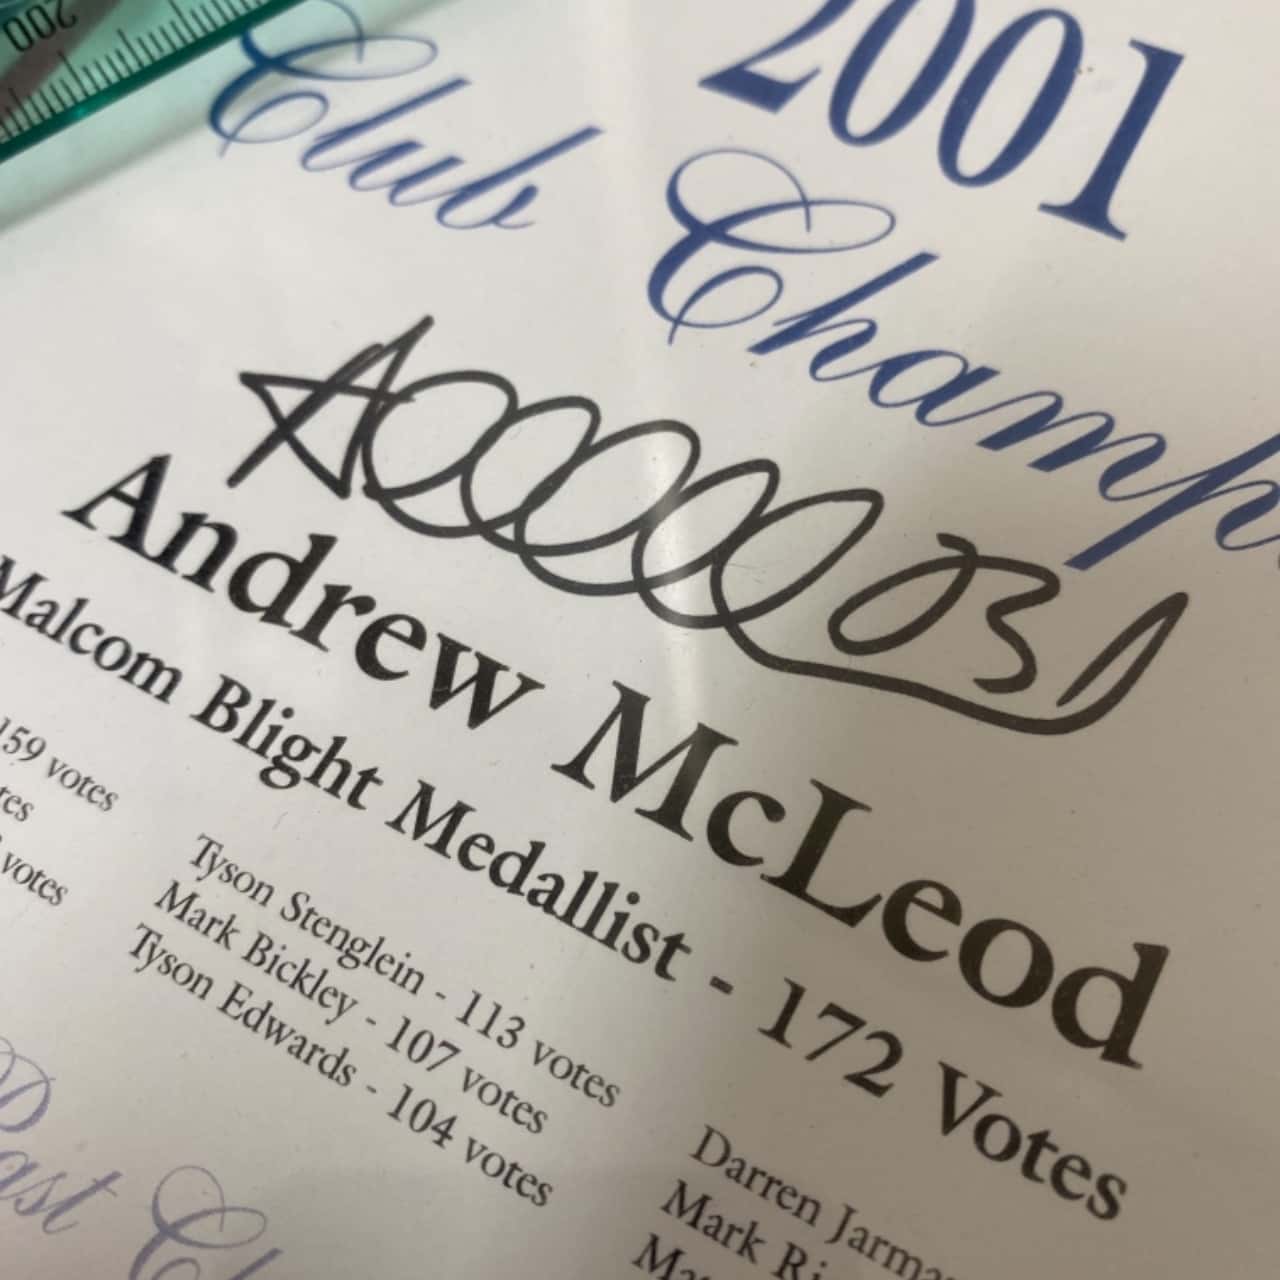 200
2001
Club Champ
Andrew McLeod
Malcom Blight Medallist - 172 Votes
159 votes
votes
Tyson Stenglein - 113 votes
Mark Bickley - 107 votes
Tyson Edwards - 104 votes
Darren Jarma
Mark Ri
Past Cl